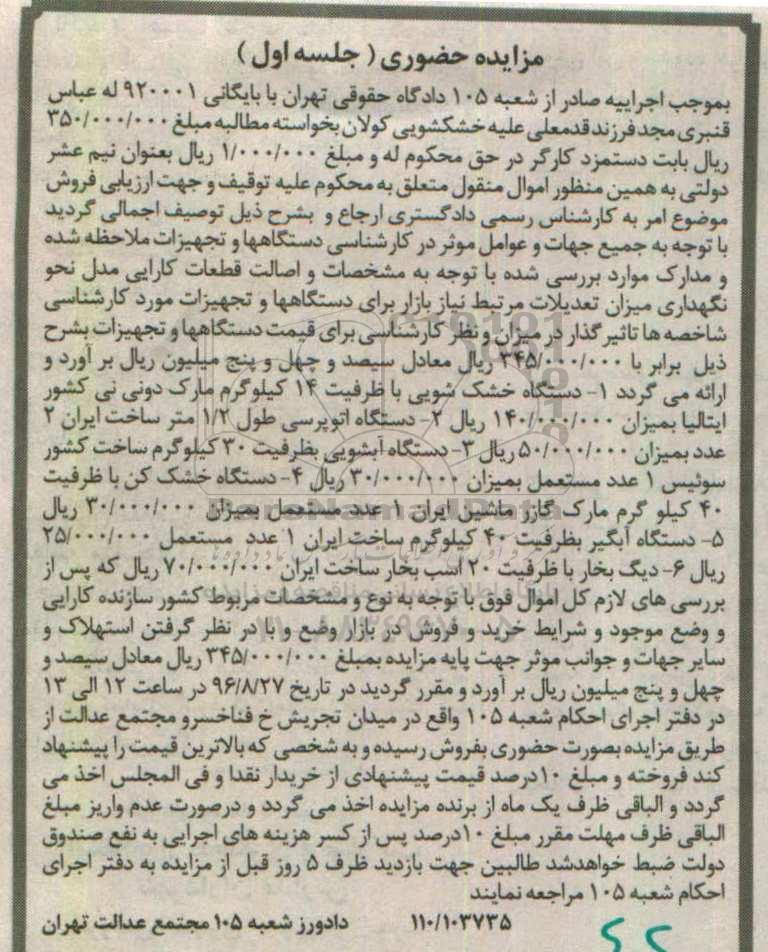 مزایده حضوری ( جلسه اول )
بموجب اجراییه صادر از شعبه ۱۰۵ دادگاه حقوقی تهران با بایگانی ۹۲۰۰۰۱ له عباس
قنبری مجد فرزند قدمعلی علیه خشکشویی کولان بخواسته مطالبه مبلغ ۳۵۰/۰۰۰/۰۰۰
ریال بابت دستمزد کارگر در حق محکوم له و مبلغ ۱/۰۰۰/۰۰۰ ریال بعنوان نیم عشر
دولتی به همین منظور اموال منقول متعلق به محکوم علیه توقیف و جهت ارزیابی فروش
موضوع امر به کارشناس رسمی دادگستری ارجاع و بشرح ذیل توصیف اجمالی گردید
با توجه به جمیع جهات و عوامل موثر در کارشناسی دستگاهها و تجهیزات ملاحظه شده
و مدارک موارد بررسی شده با توجه به مشخصات و اصالت قطعات کارایی مدل نحو
نگهداری میزان تعدیلات مرتبط نیاز بازار برای دستگاهها و تجهیزات مورد کارشناسی
شاخصه ها تاثیر گذار در میزان و نظر کارشناسی برای قیمت دستگاهها و تجهیزات بشرح
ذیل برابر با ۳۴۵/۰۰۰/۰۰۰ ریال معادل سیصد و چهل و پنج میلیون ریال بر آورد و
ارائه می گردد ۱- دستگاه خشک شویی با ظرفیت ۱۴ کیلوگرم مارک دونی نی کشور
ایتالیا بمیزان ۱۴۰/۰۰۰/۰۰۰ ریال ۲- دستگاه اتوپرسی طول ۱/۲ متر ساخت ایران ۲
عدد بمیزان ۵۰/۰۰۰/۰۰۰ ریال ۳- دستگاه آبشویی بظرفیت ۳۰ کیلوگرم ساخت کشور
سوئیس ۱ عدد مستعمل بمیزان ۳۰/۰۰۰/۰۰۰ ریال ۴- دستگاه خشک کن با ظرفیت
۴۰ کیلو گرم مارک گازر ماشین ایران ۱ عدد مستعمل بمیزان ۳۰/۰۰۰/۰۰۰ ریال
۵- دستگاه آبگیر بظرفیت ۴۰ کیلوگرم ساخت ایران ۱ عدد مستعمل ۲۵/۰۰۰/۰۰۰
ریال ۶- دیگ بخار با ظرفیت ۲۰ اسب بخار ساخت ایران ۷۰/۰۰۰/۰۰۰ ریال که پس از
بررسی های لازم کل اموال فوق با توجه به نوع و مشخصات مربوط کشور سازنده کارایی
و وضع موجود و شرایط خرید و فروش در بازار وضع و با در نظر گرفتن استهلاک و
سایر جهات و جوانب موثر جهت پایه مزایده بمبلغ ۳۴۵/۰۰۰/۰۰۰ ریال معادل سیصد و
چهل و پنج میلیون ریال بر آورد و مقرر گردید در تاریخ ۹۶/۸/۲۷ در ساعت ۱۲ الی ۱۳
در دفتر اجرای احکام شعبه ۱۰۵ واقع در میدان تجریش خ فناخسرو مجتمع عدالت از
طریق مزایده بصورت حضوری بفروش رسیده و به شخصی که بالاترین قیمت را پیشنهاد
کند فروخته و مبلغ ۱۰درصد قیمت پیشنهادی از خریدار نقدا و فی المجلس اخذ می
گردد و الباقی ظرف یک ماه از برنده مزایده اخذ می گردد و درصورت عدم واریز مبلغ
الباقی ظرف مهلت مقرر مبلغ ۱۰درصد پس از کسر هزینه های اجرایی به نفع صندوق
دولت ضبط خواهدشد طالبین جهت بازدید ظرف ۵ روز قبل از مزایده به دفتر اجرای
احکام شعبه ۱۰۵ مراجعه نمایند
۱۱۰/۱۰۳۷۳۵ دادورز شعبه ۱۰۵ مجتمع عدالت تهران
ParsNamadData